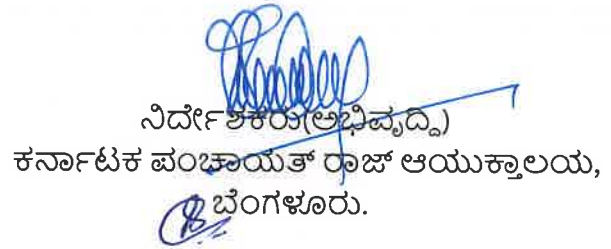 ನಿರ್ದೇಶಕರು(ಅಭಿವೃದ್ದಿ)
ಕರ್ನಾಟಕ ಪಂಚಾಯತ್ ರಾಜ್ ಆಯುಕ್ತಾಲಯ,
ಬೆಂಗಳೂರು.